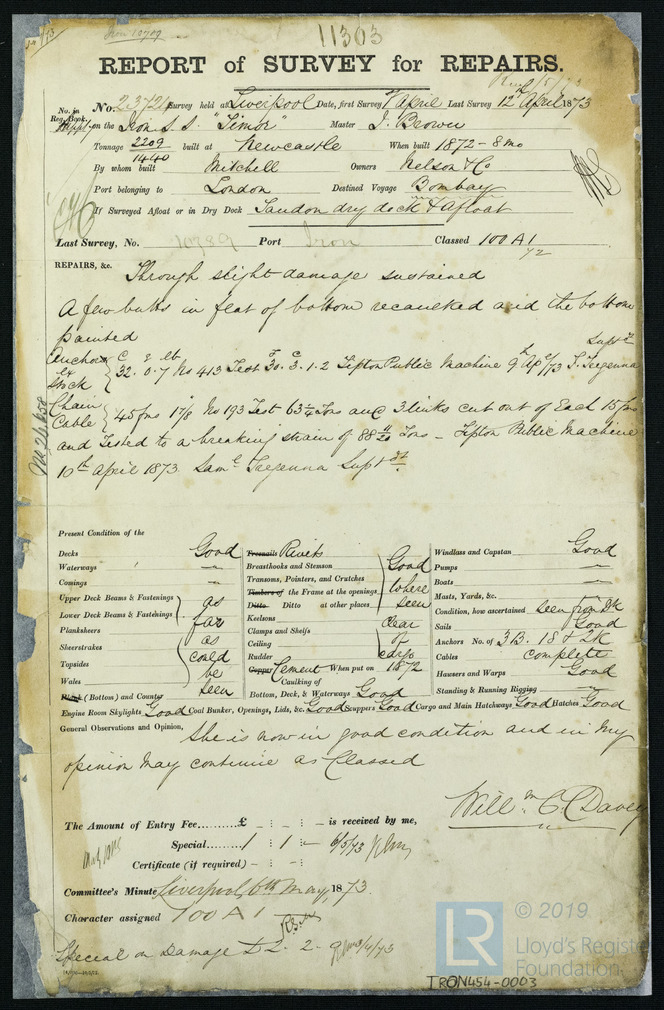 11303
Iron 10789
REPORT of SURVEY for REPAIRS.
No. in Reg. Book.
No. 23721 Survey held at Liverpool Date, first Survey 7 April Last Survey 12th April 1873
on the Iron S.S. "Timor" Master J. Brown
Tonnage 2209 / 1440 built at Newcastle When built 1872 - 8mo
By whom built Mitchell Owners Nelson & Co
Port belonging to London Destined Voyage Bombay
If Surveyed Afloat or in Dry Dock Sandon dry dock & Afloat
Last Survey, No. 10789 Port Iron Classed 100 A1
72
REPAIRS, &c. Through slight damage sustained
A few butts in flat of bottom recaulked and the bottom
painted
Anchor ex Stock { C 32. E 0. lb 7 No 413 Test T 30. C 3. 1. 2 Tipton Public Machine 9th Apl/73 S. Tregenna Supt
Chain Cable { 45 fms 1 7/8 No 193 Test 63 1/4 Tons and 3 links cut out of Each 15 fms
and Tested to a breaking strain of 88 11/20 Tons - Tipton Public Machine
10th April 1873. Saml Tregenna Supt
Present Condition of the
Decks Good
Waterways "
Comings "
Upper Deck Beams & Fastenings
Lower Deck Beams & Fastenings
Planksheers
Sheerstrakes
Topsides
Wales
as far as could be seen
Plank (Bottom) and Counter
Treenails Rivets
Breasthooks and Stemson
Transoms, Pointers, and Crutches
Timbers of the Frame at the openings
Ditto Ditto at other places
Keelsons
Clamps and Shelfs
Ceiling
Rudder
Good where seen clear of cargo
Copper Cement When put on 1872
Caulking of
Bottom, Deck, & Waterways Good
Windlass and Capstan Good
Pumps "
Boats "
Masts, Yards, &c.
Condition, how ascertained seen from Dk
Sails Good
Anchors No. of 3B. 1S & 2K
Cables complete
Hawsers and Warps Good
Standing & Running Rigging "
Engine Room Skylights Good Coal Bunker, Openings, Lids, &c. Good Scuppers Good Cargo and Main Hatchways Good Hatches Good
General Observations and Opinion, She is now in good condition and in my
opinion may continue as Classed
Willm C. Davey
The Amount of Entry Fee.........£ - : - : - is received by me,
Special......1 : 1 : - 6/5/73
Certificate (if required) - : - : -
Committee's Minute Liverpool, 6th May, 1873.
Character assigned 100 A1
Special on Damage £ 2 - 2 -
LR
© 2019
Lloyd's Registe
Foundation
IRON454-0003